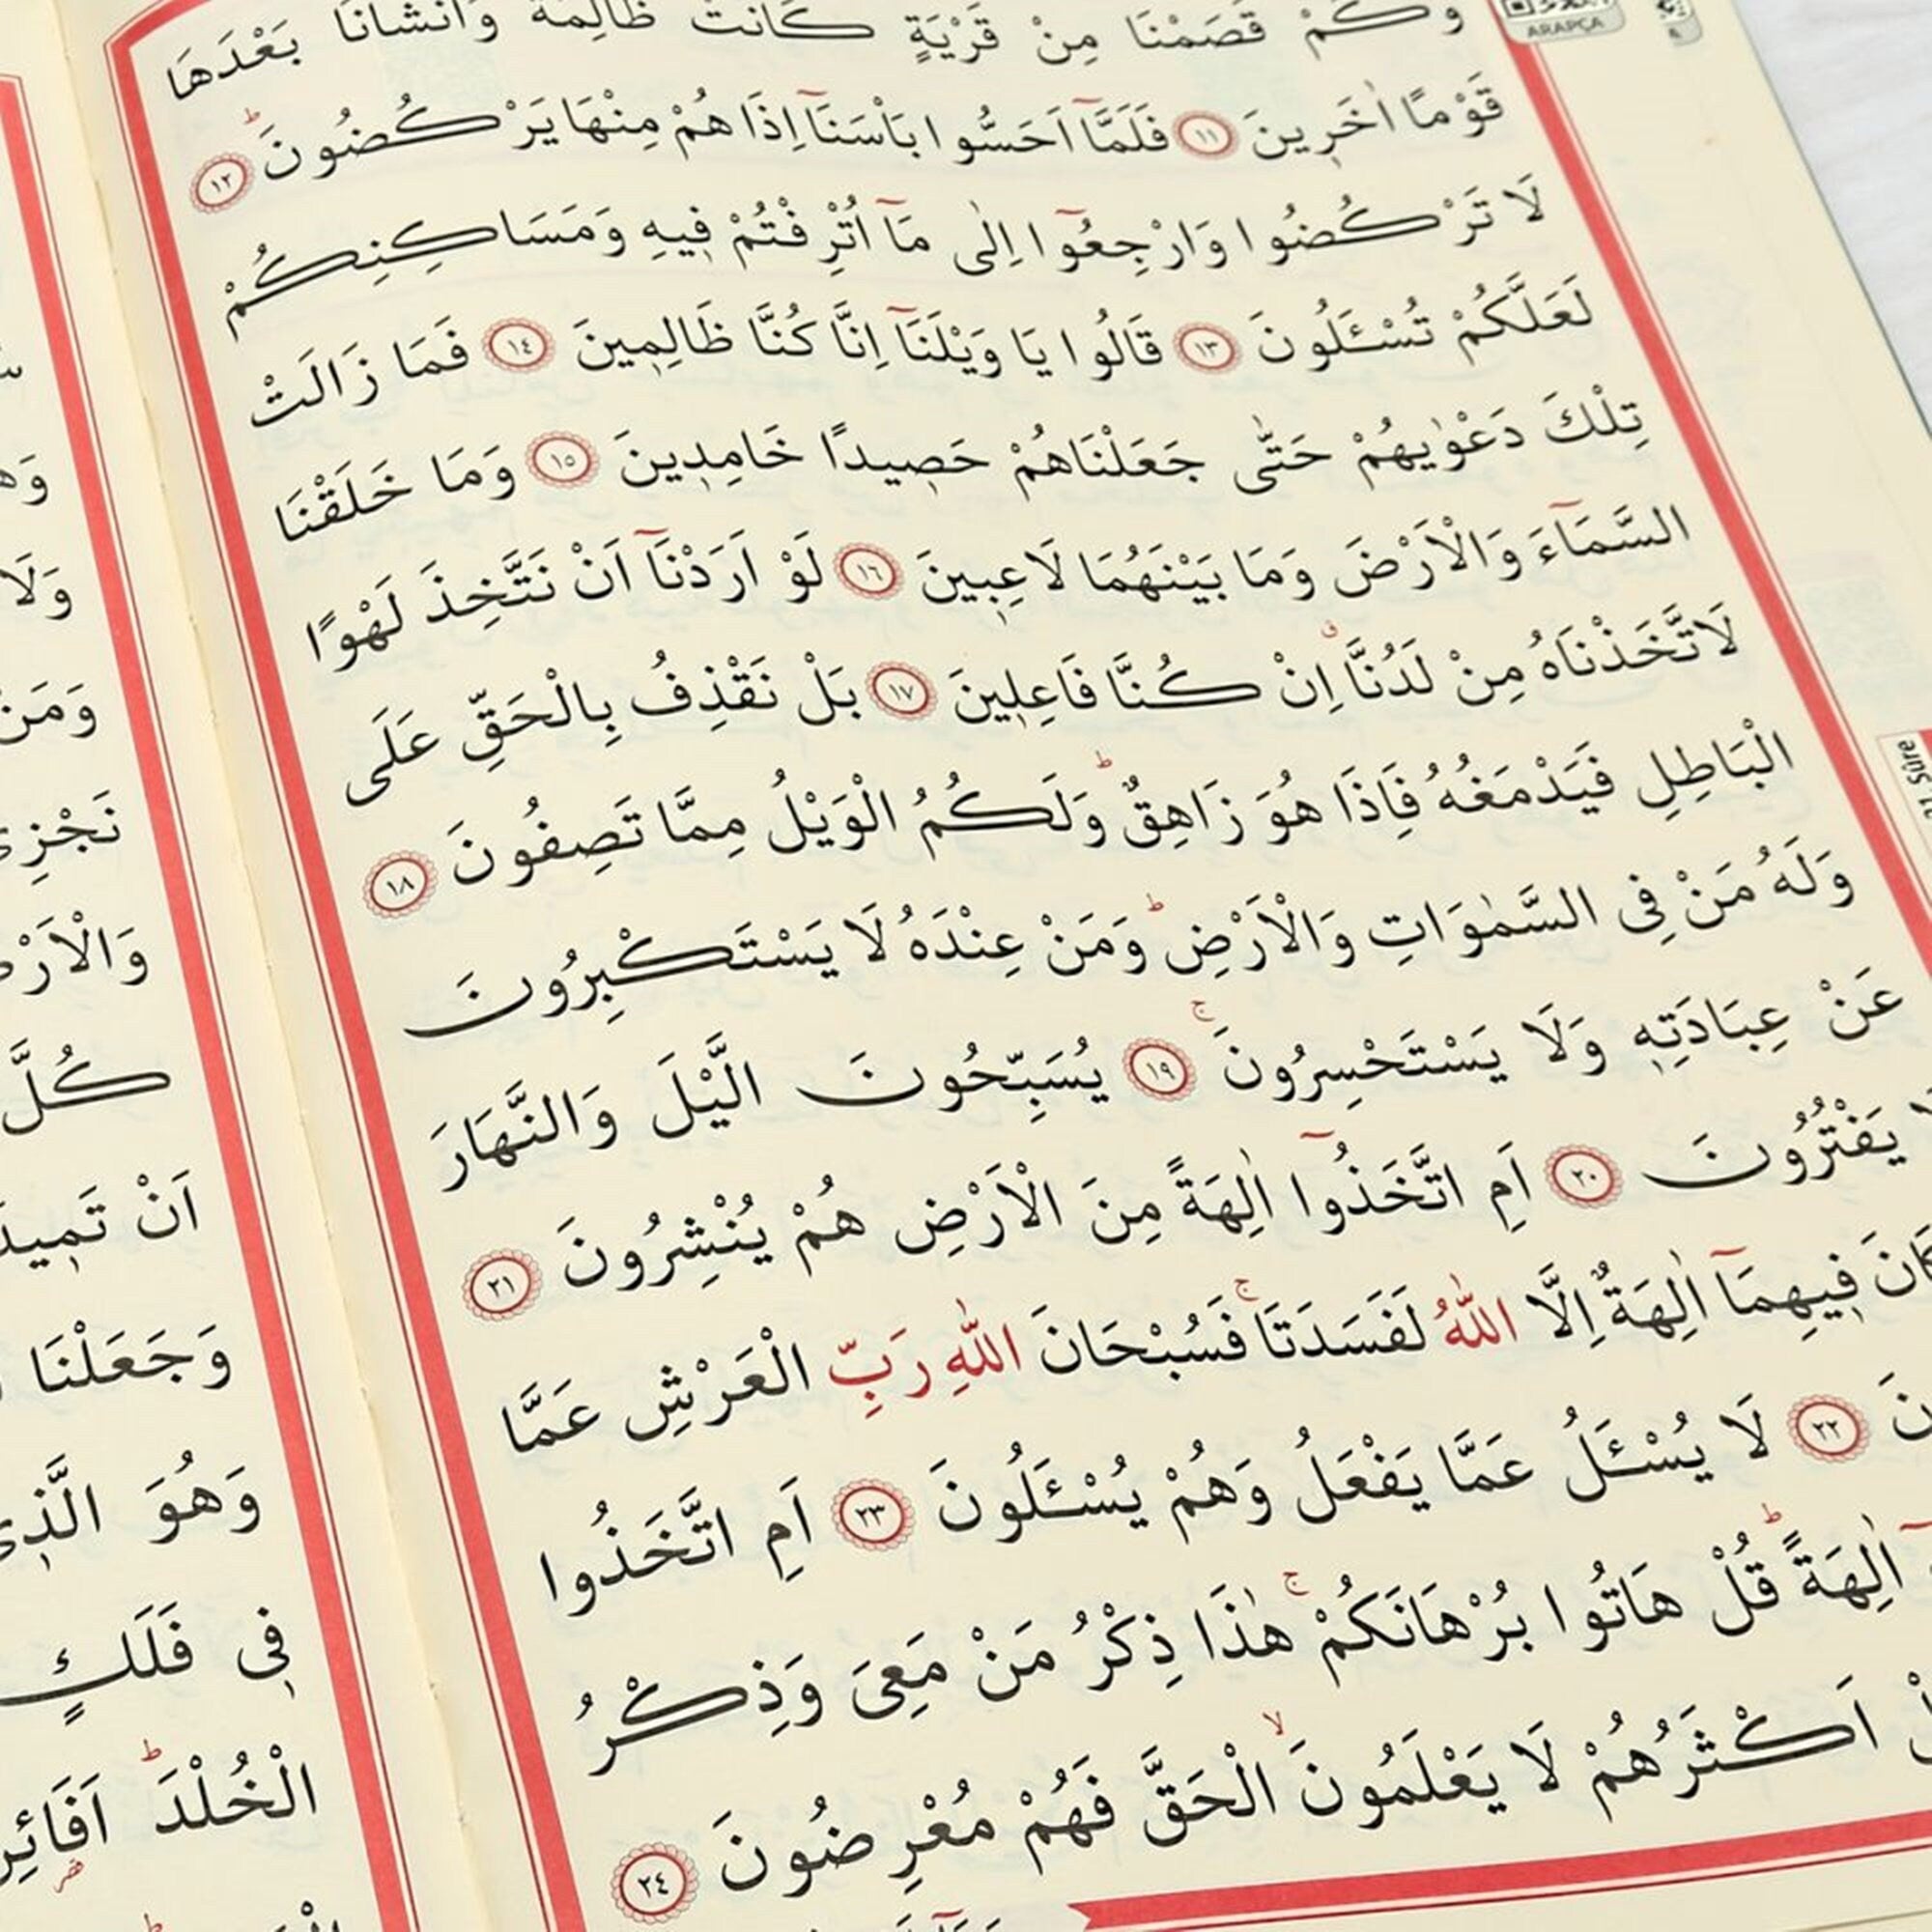 ARAPÇA
وَكَمْ قَصَمْنَا مِنْ قَرْيَةٍ كَانَتْ ظَالِمَةً وَاَنْشَأْنَا بَعْدَهَا
قَوْمًا اٰخَرِينَ ﴿١١﴾ فَلَمَّٓا اَحَسُّوا بَأْسَنَٓا اِذَا هُمْ مِنْهَا يَرْكُضُونَۜ ﴿١٢﴾
لَا تَرْكُضُوا وَارْجِعُٓوا اِلٰى مَٓا اُتْرِفْتُمْ فِيهِ وَمَسَاكِنِكُمْ
لَعَلَّكُمْ تُسْـَٔلُونَ ﴿١٣﴾ قَالُوا يَا وَيْلَنَٓا اِنَّا كُنَّا ظَالِمِينَ ﴿١٤﴾ فَمَا زَالَتْ
تِلْكَ دَعْوٰيهُمْ حَتّٰى جَعَلْنَاهُمْ حَصِيدًا خَامِدِينَ ﴿١٥﴾ وَمَا خَلَقْنَا
السَّمَٓاءَ وَالْاَرْضَ وَمَا بَيْنَهُمَا لَاعِبِينَ ﴿١٦﴾ لَوْ اَرَدْنَٓا اَنْ نَتَّخِذَ لَهْوًا
لَاتَّخَذْنَاهُ مِنْ لَدُنَّاۗ اِنْ كُنَّا فَاعِلِينَ ﴿١٧﴾ بَلْ نَقْذِفُ بِالْحَقِّ عَلَى
الْبَاطِلِ فَيَدْمَغُهُ فَاِذَا هُوَ زَاهِقٌۜ وَلَكُمُ الْوَيْلُ مِمَّا تَصِفُونَ ﴿١٨﴾
وَلَهُ مَنْ فِى السَّمٰوَاتِ وَالْاَرْضِۜ وَمَنْ عِنْدَهُ لَا يَسْتَكْبِرُونَ
عَنْ عِبَادَتِهِ وَلَا يَسْتَحْسِرُونَۚ ﴿١٩﴾ يُسَبِّحُونَ الَّيْلَ وَالنَّهَارَ
يَفْتُرُونَ ﴿٢٠﴾ اَمِ اتَّخَذُٓوا اٰلِهَةً مِنَ الْاَرْضِ هُمْ يُنْشِرُونَ ﴿٢١﴾
كَانَ فِيهِمَٓا اٰلِهَةٌ اِلَّا اللّٰهُ لَفَسَدَتَاۚ فَسُبْحَانَ اللّٰهِ رَبِّ الْعَرْشِ عَمَّا
﴿٢٢﴾ لَا يُسْـَٔلُ عَمَّا يَفْعَلُ وَهُمْ يُسْـَٔلُونَ ﴿٢٣﴾ اَمِ اتَّخَذُوا
اٰلِهَةًۜ قُلْ هَاتُوا بُرْهَانَكُمْۚ هٰذَا ذِكْرُ مَنْ مَعِىَ وَذِكْرُ
اَكْثَرُهُمْ لَا يَعْلَمُونَۙ الْحَقَّ فَهُمْ مُعْرِضُونَ ﴿٢٤﴾
Sûre
وَلَا
وَمَنْ
نَجْزِى
وَالْاَرْضَ
كُلَّ
اَنْ تَمِيدَ
وَجَعَلْنَا
وَهُوَ الَّذِى
فِى فَلَكٍ
الْخُلْدَۜ اَفَائِنْ